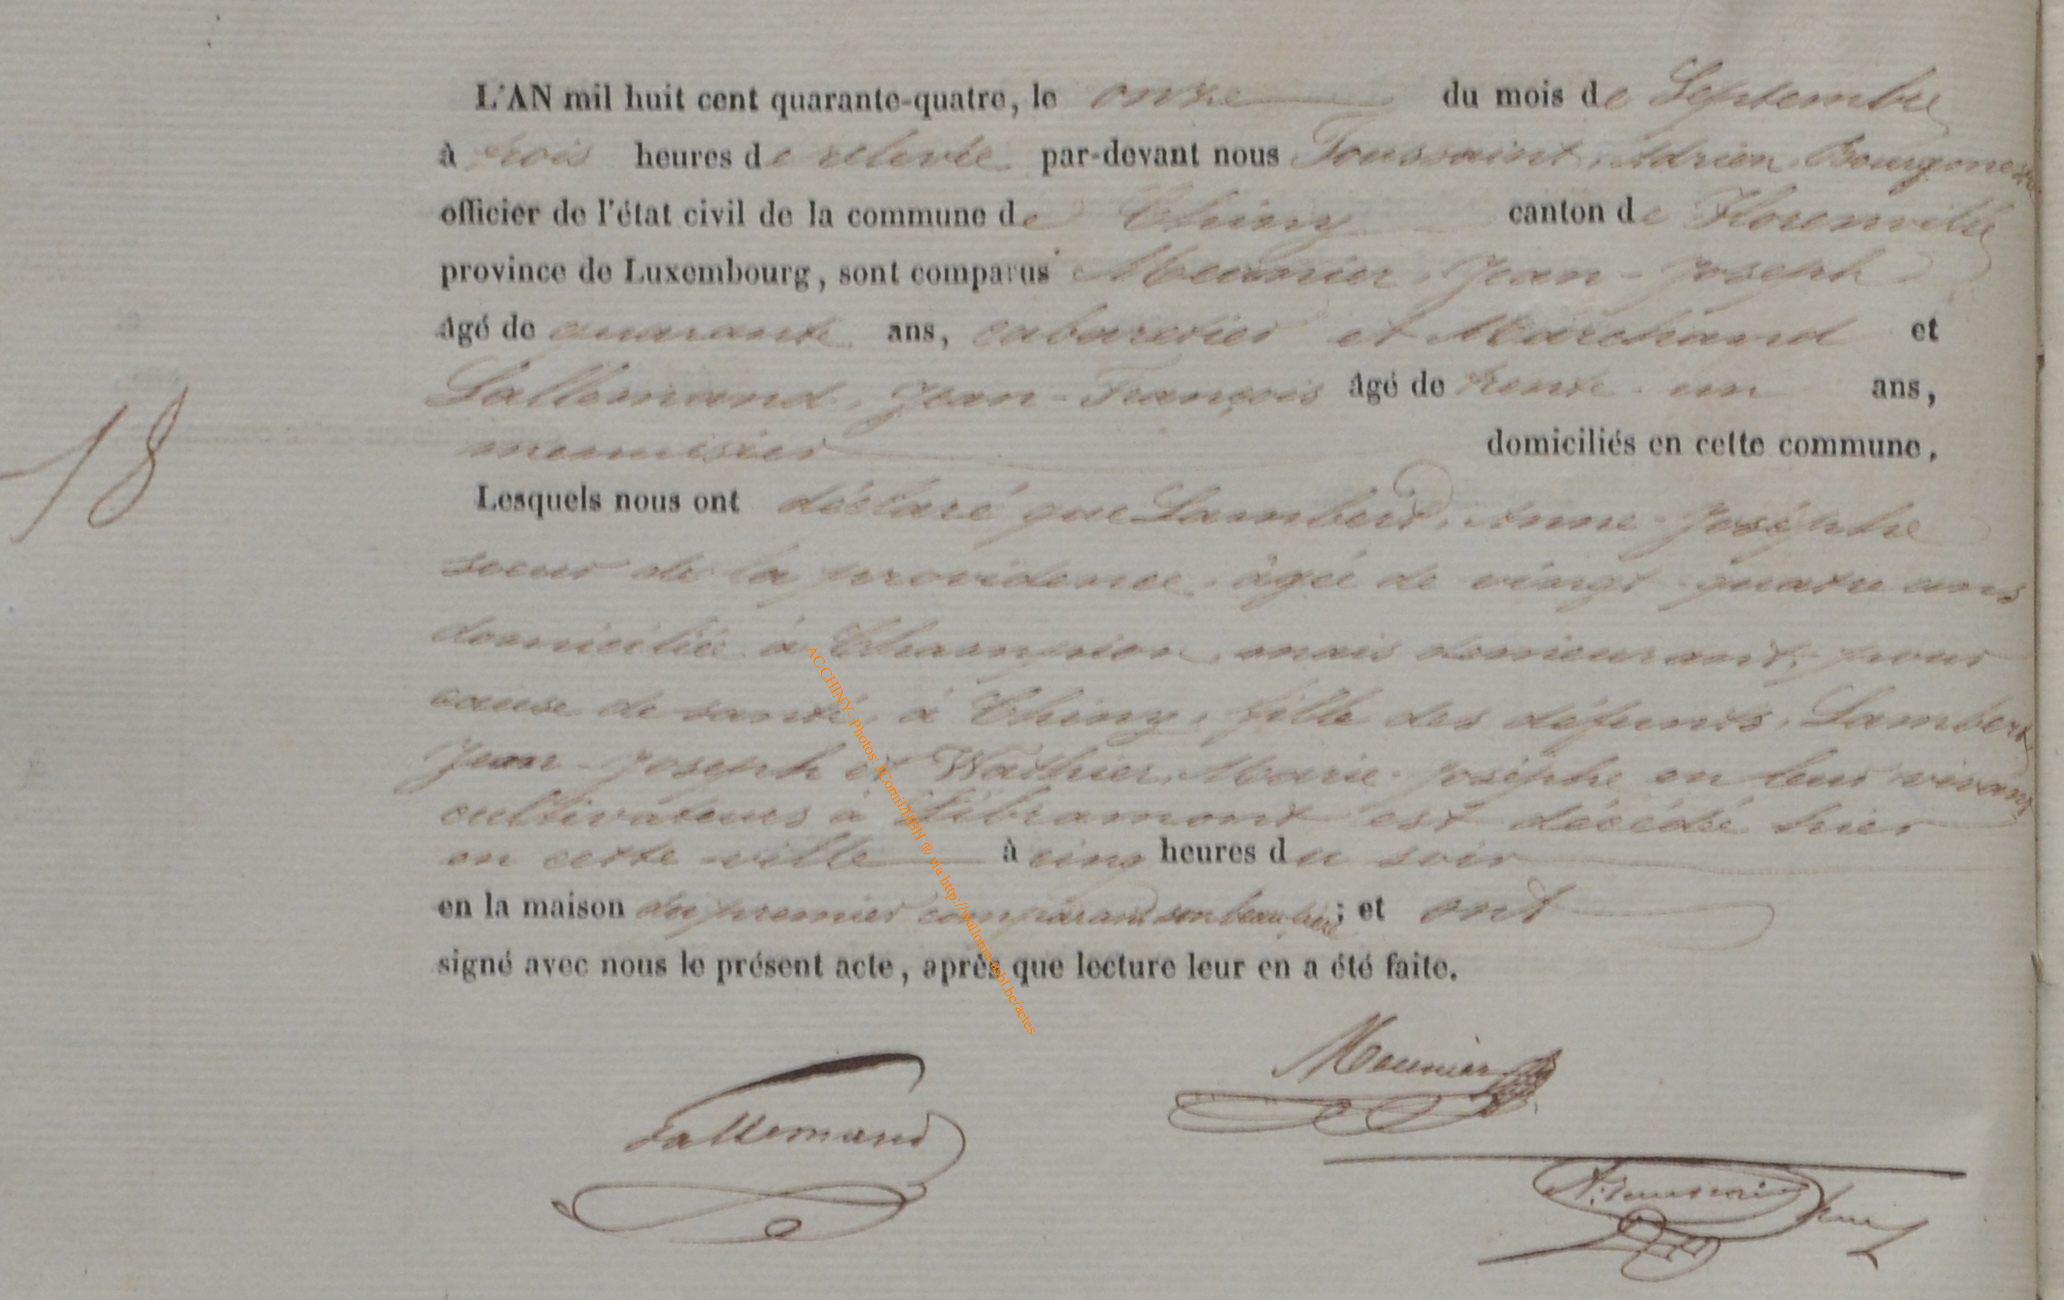 L'AN mil huit cent quarante-quatre, le onze du mois de Septembre
à trois heures de relevée par-devant nous Toussaint, Adrien
officier de l'état civil de la commune de Chiny canton de Florenville
province de Luxembourg, sont comparus Meunier, Jean-Joseph
âgé de quarante ans, cabaretier et Marchand et
Lallemand, Jean-François âgé de trente-un ans,
menuisier domiciliés en cette commune.
18
Lesquels nous ont déclaré que Lambert, Anne-Joséphe
soeur de la providence, âgée de vingt-quatre ans
domiciliée à Champion, mais demeurant, pour
cause de santé, à Chiny, fille des défunts, Lambert
Jean-Joseph et Wathier, Marie-Joséphe en leur vivant
cultivateurs à Libramont est décédée hier
en cette ville à cinq heures du soir
en la maison du premier comparant son beau-frère; et ont
signé avec nous le présent acte, après que lecture leur en a été faite.
Meunier
Lallemand
A. Toussaint